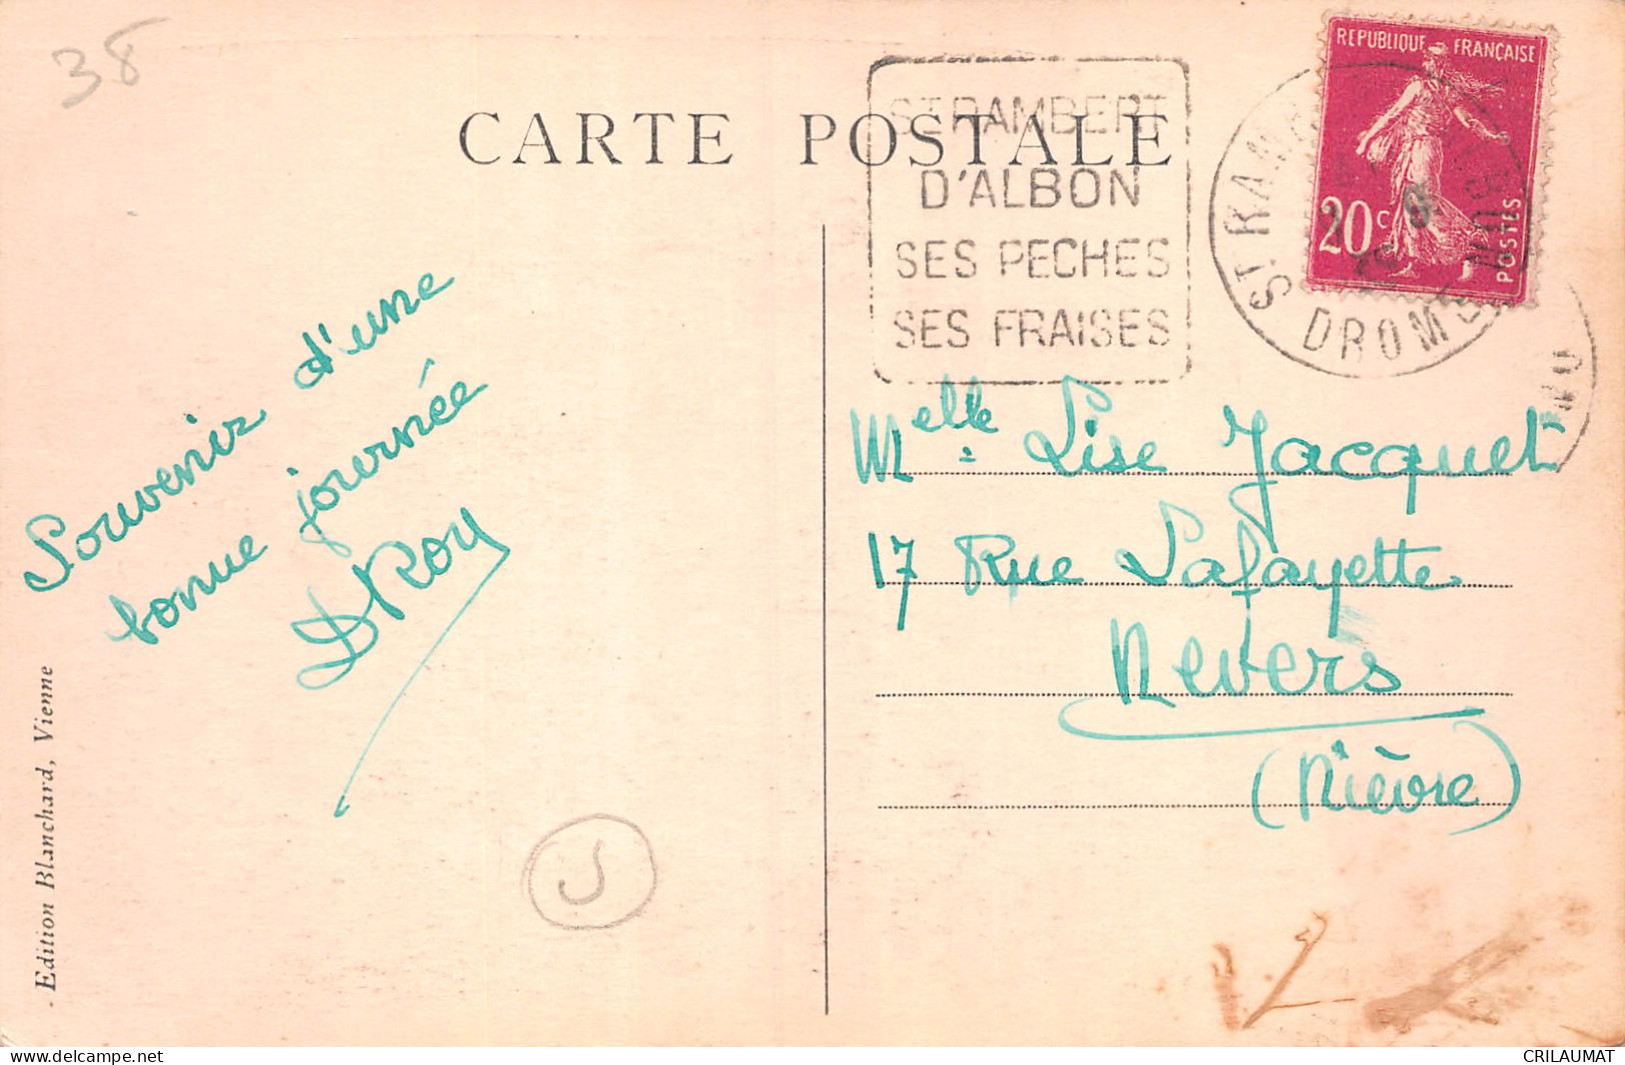 38
CARTE POSTALE
ST RAMBERT
D'ALBON
SES PECHES
SES FRAISES
REPUBLIQUE FRANÇAISE
20c
POSTES
DROME
Souvenir d'une
bonne journée
DRoy
Melle Lise Jacquet
17 Rue Lafayette
Nevers
(Nièvre)
Edition Blanchard, Vienne
J
www.delcampe.net
CRILAUMAT